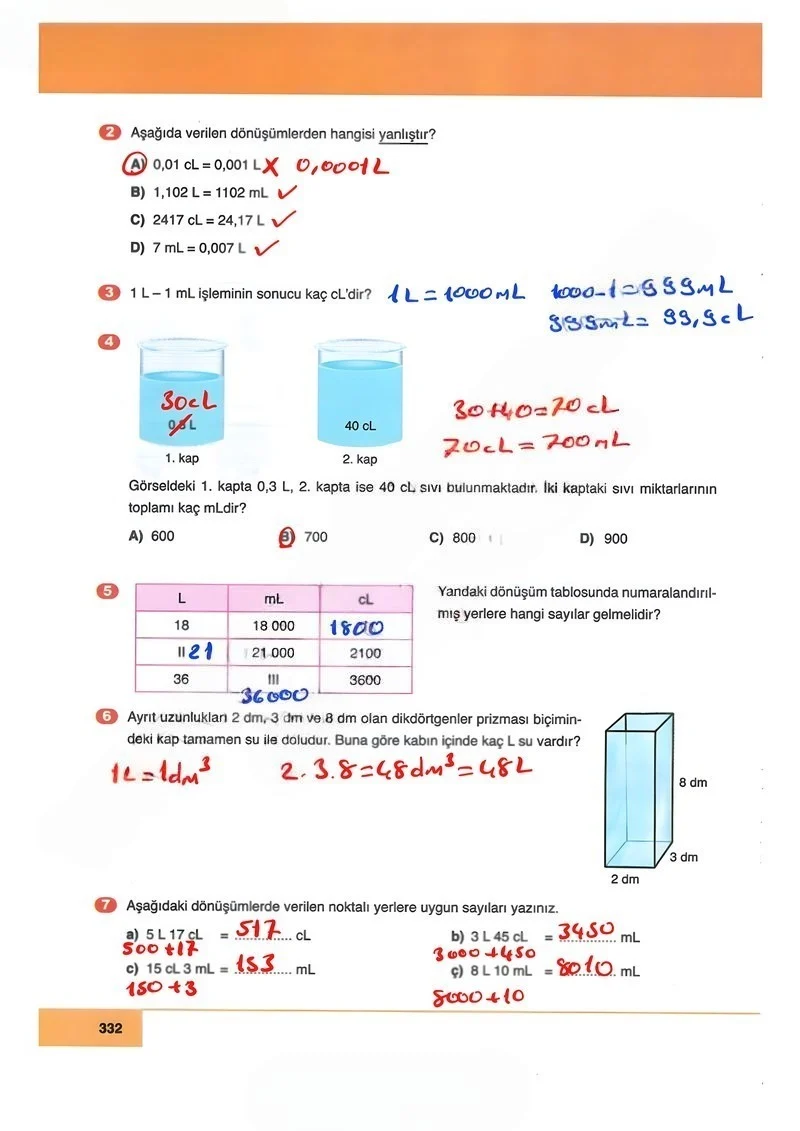 2 Aşağıda verilen dönüşümlerden hangisi yanlıştır?
A) 0,01 cL = 0,001 L X 0,0001L
B) 1,102 L = 1102 mL ✓
C) 2417 cL = 24,17 L ✓
D) 7 mL = 0,007 L ✓
3 1 L – 1 mL işleminin sonucu kaç cL'dir? 1L = 1000mL 1000-1=999mL
999mL= 99,9cL
4
30cL
0,3 L
40 cL
30+40=70cL
70cL = 700mL
1. kap 2. kap
Görseldeki 1. kapta 0,3 L, 2. kapta ise 40 cL sıvı bulunmaktadır. İki kaptaki sıvı miktarlarının
toplamı kaç mLdir?
A) 600 B) 700 C) 800 D) 900
5 Yandaki dönüşüm tablosunda numaralandırıl-
mış yerlere hangi sayılar gelmelidir?
L mL cL
18 18 000 1800
II 21 21 000 2100
36 III 3600
36000
6 Ayrıt uzunlukları 2 dm, 3 dm ve 8 dm olan dikdörtgenler prizması biçimin-
deki kap tamamen su ile doludur. Buna göre kabın içinde kaç L su vardır?
1L=1dm³ 2.3.8=48dm³=48L
8 dm
3 dm
2 dm
7 Aşağıdaki dönüşümlerde verilen noktalı yerlere uygun sayıları yazınız.
a) 5 L 17 cL = 517 cL
500+17
b) 3 L 45 cL = 3450 mL
3000+450
c) 15 cL 3 mL = 153 mL
150+3
ç) 8 L 10 mL = 8010 mL
8000+10
332